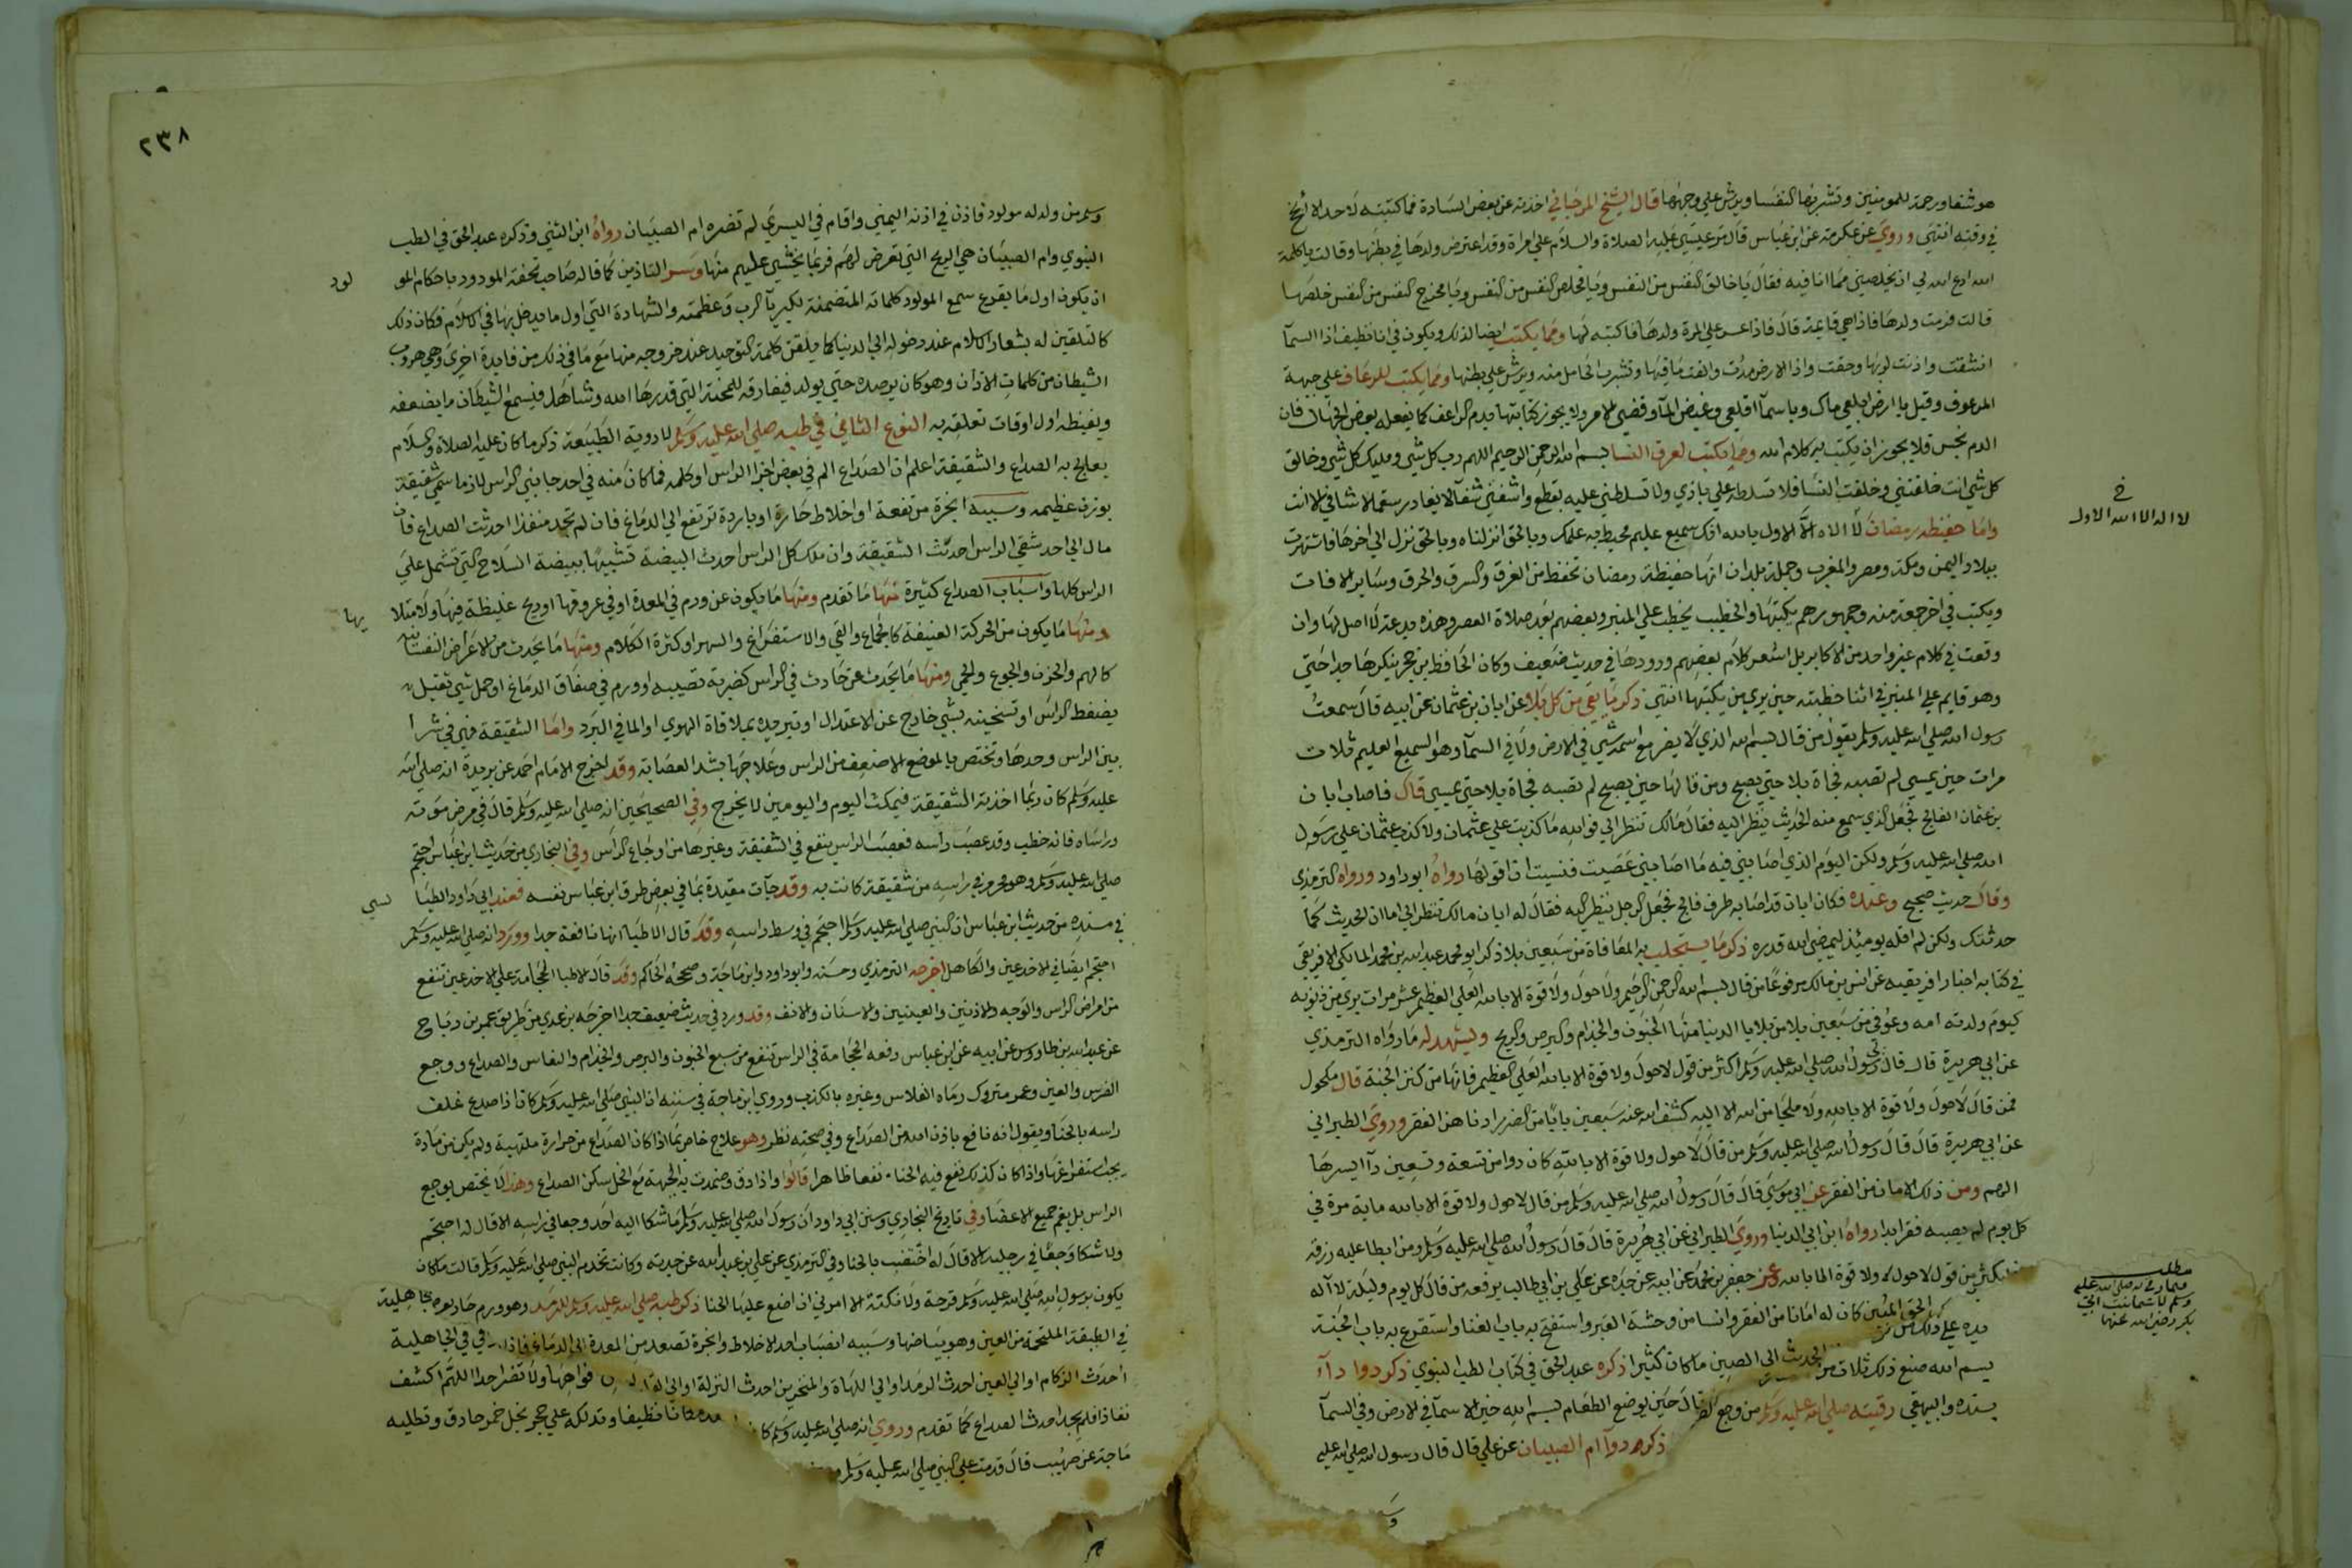 هو شفا ورحمة للمومنين وتشربها النفسا ويرش علي وجهها قال الشيخ المرجاني اخذته عن بعض السادة فما كتبته لاحد الا نجح
في وقته انتهي وروي عن عكرمة عن ابن عباس قال مر عيسي عليه الصلاة والسلام علي امراة وقد اعترض ولدها في بطنها وقالت يا كلمة
الله ادع الله لي ان يخلصني مما انا فيه فقال يا خالق النفس من النفس ويا مخلص النفس من النفس ويا مخرج النفس من النفس خلصها
قالت فرمت ولدها فاذا هي قايمة قال فاذا عسر علي المرة ولدها فاكتبه لها ومما يكتب ايضا لذلك ويكون في انا نظيف اذا السمآ
انشقت واذنت لربها وحقت واذا الارض مدت والقت ما فيها وتشرب الحامل منه ويرش علي بطنها ومما يكتب للرعاف علي جبهة
المرعوف وقيل يا ارض ابلعي ماك ويا سمآ اقلعي وغيض المآ وقضي الامر ولا يجوز كتابتها بدم الراعف كما يفعله بعض الجهال فان
الدم نجس فلا يجوز ان يكتب به كلام الله ومما يكتب لعرق النسا بسم الله الرحمن الرحيم اللهم رب كل شي ومليك كل شي وخالق
كل شي انت خلقتني وخلقت النسا فلا تسلطه علي باذي ولا تسلطني عليه بقطع واشفني شفآ لا يغادر سقما لا شافي الا انت
واما حفيظه رمضان لا الاه الا الاول بالله انك سميع عليم محيط به علمك وبالحق انزلناه وبالحق نزل الي اخرها فاشتهرت
ببلاد اليمن ومكة ومصر والمغرب وجملة بلدان انها حفيظة رمضان تحفظ من الغرق والسرق والحرق وساير الافات
ويكتب في اخر جمعة منه وجمهورهم يكتبها والخطيب يخطب علي المنبر وبعضهم بعد صلاة العصر وهذه بدعة لا اصل لها وان
وقعت في كلام غير واحد من الاكابر بل اشعر كلام بعضهم ورودها في حديث ضعيف وكان الحافظ بن حجر ينكرها جدا حتي
وهو قايم علي المنبر في اثنا خطبته حين يري من يكتبها انتهي ذكر ما يقي من كل بلا وعن ابان بن عثمان عن ابيه قال سمعت
رسول الله صلي الله عليه وسلم يقول من قال بسم الله الذي لا يضر مع اسمه شي في الارض ولا في السمآ وهو السميع العليم ثلاث
مرات حين يمسي لم تصبه فجاة بلا حتي يصبح ومن قالها حين يصبح لم تصبه فجاة بلا حتي يمسي قال فاصاب ابان
بن عثمان الفالج فجعل الذي سمع منه الحديث ينظر اليه فقال مالك تنظر الي فوالله ما كذبت علي عثمان ولا كذب عثمان علي رسول
الله صلي الله عليه وسلم ولكن اليوم الذي اصابني فيه ما اصابني غضبت فنسيت ان اقولها رواه ابو داود ورواه الترمذي
وقال حديث صحيح وعنده فكان ابان قد اصابه طرف فالج فجعل الرجل ينظر اليه فقال له ابان مالك تنظر الي اما ان الحديث كما
حدثتك ولكن لم اقله يوميذ ليمضي الله قدره ذكر ما يستجلب به المعافاة من سبعين بلا ذكر ابو محمد عبد الله بن محمد المالكي الافريقي
في كتابه اخبار افريقيه عن انس بن مالك مرفوعا من قال بسم الله الرحمن الرحيم ولا حول ولا قوة الا بالله العلي العظيم عشر مرات بري من ذنوبه
كيوم ولدته امه وعوفي من سبعين بلا من بلايا الدنيا منها الجنون والجذام والبرص والريح ويشهد له ما رواه الترمذي
عن ابي هريرة قال قال لي رسول الله صلي الله عليه وسلم اكثر من قول لا حول ولا قوة الا بالله العلي العظيم فانها من كنز الجنة قال مكحول
فمن قال لا حول ولا قوة الا بالله ولا ملجا من الله الا اليه كشف الله عنه سبعين بابا من الضر ادناهن الفقر وروي الطبراني
عن ابي هريرة قال قال رسول الله صلي الله عليه وسلم من قال لا حول ولا قوة الا بالله كان دوا من تسعة وتسعين دآ ايسرها
الهم ومن ذلك الامان من الفقر عن ابي موسي قال قال رسول الله صلي الله عليه وسلم من قال لا حول ولا قوة الا بالله ماية مرة في
كل يوم لم يصبه فقر ابدا رواه ابن ابي الدنيا وروي الطبراني عن ابي هريرة قال قال رسول الله صلي الله عليه وسلم ومن ابطا عليه رزقه
فليكثر من قول لا حول ولا قوة الا بالله وعن جعفر بن محمد عن ابيه عن جده عن علي بن ابي طالب يرفعه من قال كل يوم وليلة لا اله
الحق المبين كان له امانا من الفقر وانسا من وحشة القبر واستفتح به باب الغنا واستقرع به باب الجنة
الحديث الي الصين ما كان كثيرا ذكره عبد الحق في كتاب الطب النبوي ذكر دوا دآ
قال حين يوضع الطعام بسم الله خير الاسمآ في الارض وفي السمآ
ذكر دوآ ام الصبيان عن علي قال قال رسول الله صلي الله عليه
خ
لا اله الا الله الاول
مطلب
٢٣٨
وسلم من ولد له مولود فاذن في اذنه اليمني واقام في اليسري لم تضره ام الصبيان رواه ابن السني وذكره عبد الحق في الطب
النبوي وام الصبيان هي الريح التي تعرض لهم فربما يخشي عليهم منها وسر التاذين كما قاله صاحب تحفة المودود باحكام المو
لود
ان يكون اول ما يقرع سمع المولود كلماته المتضمنة لكبريآ الرب وعظمته والشهادة التي اول ما يدخل بها في الاسلام فكان ذلك
كالتلقين له بشعار الاسلام عند دخوله الي الدنيا كما يلقن كلمة التوحيد عند خروجه منها مع ما في ذلك من فايدة اخري وهي هروب
الشيطان من كلمات الاذان وهو كان يرصده حتي يولد فيقارقه للمحنة التي قدرها الله وشاها له فيسمع الشيطان ما يضعفه
ويغيظه اول اوقات تعلقه به النوع الثاني في طبه صلي الله عليه وسلم لادوية الطبيعة ذكر ما كان عليه الصلاة والسلام
يعالج به الصداع والشقيقة اعلم ان الصداع الم في بعض اجزا الراس او كله فما كان منه في احد جانبي الراس لازما سمي شقيقة
بوزن عظيمه وسببه ابخرة مرتفعة او اخلاط حارة او باردة ترتفع الي الدماغ فان لم تجد منفذا احدثت الصداع فان
مال الي احد شقي الراس احدث الشقيقة وان ملك كل الراس احدث البيضة تشبيها ببيضة السلاح التي تشمل علي
الراس كلها واسباب الصداع كثيرة منها ما تقدم ومنها ما يكون عن ورم في المعدة او في عروقها او ريح غليظة فيها ولامتلا
يها
ومنها ما يكون من الحركة العنيفة كالجماع والقي والاستفراغ والسهر او كثرة الكلام ومنها ما يحدث من الاعراض النفسانية
كالهم والحزن والجوع والحمي ومنها ما يحدث عن حادث في الراس كضربة تصيبه او ورم في صفاق الدماغ او حمل شي ثقيل
يضغط الراس او تسخينه بشي خارج عن الاعتدال او تبريده بملاقاة الهوي او الما في البرد واما الشقيقة فهي في شرا
يين الراس وحدها وتختص بالموضع الاضعف من الراس وعلاجها بشد العصابة وقد اخرج الامام احمد عن بريدة انه صلي الله
عليه وسلم كان ربما اخذته الشقيقة فيمكث اليوم واليومين لا يخرج وفي الصحيحين انه صلي الله عليه وسلم قال في مرض موته
وراساه فانه خطب وقد عصب راسه فعصب الراس ينفع في الشقيقة وغيرها من اوجاع الراس وفي البخاري من حديث ابن عباس احتجم
صلي الله عليه وسلم وهو محرم في راسه من شقيقة كانت به وقد جآت مقيدة بما في بعض طرق ابن عباس نفسه فعند ابي داود الطيا
لسي
في مسنده من حديث ابن عباس ان النبي صلي الله عليه وسلم احتجم في وسط راسه وقد قال الاطبا انها نافعة جدا وورد انه صلي الله عليه وسلم
احتجم ايضا في الاخدعين والكاهل اخرجه الترمذي وحسنه وابو داود وابن ماجة وصححه الحاكم وقد قال الاطبا الحجامة علي الاخدعين تنفع
من امراض الراس والوجه والاذنين والعينين والاسنان والانف وقد ورد في حديث ضعيف جدا اخرجه بن عدي من طريق عمر بن رباح
عن عبد الله بن طاووس عن ابيه عن ابن عباس رفعه الحجامة في الراس تنفع من سبع الجنون والبرص والجذام والنعاس والصداع ووجع
الضرس والعين وعمر متروك رماه الفلاس وغيره بالكذب وروي ابن ماجة في سننه ان النبي صلي الله عليه وسلم كان اذا صدع غلف
راسه بالحنا ويقول انه نافع باذن الله من الصداع وفي صحته نظر وهو علاج خاص بما اذا كان الصداع من حرارة ملتهبة ولم يكن من مادة
يجب استفراغها واذا كان كذلك نفع فيه الحنا نفعا ظاهرا قالوا واذا دق وضمدت به الجبهة مع الخل سكن الصداع وهذا لا يختص بوجع
الراس بل يعم جميع الاعضا وفي تاريخ البخاري وسنن ابي داود ان رسول الله صلي الله عليه وسلم ما شكا اليه احد وجعا في راسه الا قال له احتجم
ولا شكا وجعا في رجليه الا قال له اختضب بالحنا وفي الترمذي عن علي بن عبيد الله عن جدته وكانت تخدم النبي صلي الله عليه وسلم قالت ما كان
يكون برسول الله صلي الله عليه وسلم قرحة ولا نكتة الا امرني ان اضع عليها الحنا ذكر طبه صلي الله عليه وسلم للرمد وهو ورم حار يعرض
في الطبقة الملتحمة من العين وهو بياضها وسببه انصباب احد الاخلاط وابخرة تصعد من المعدة الي الدماغ فاذا
احدث الزكام او الي العين احدث الرمد او الي اللهاة والمنخرين احدث النزلة او الي
نفاذا فلم يجد احدث الصداع كما تقدم وروي انه صلي الله عليه وسلم كان
ماجة عن صهيب قال قدمت علي النبي صلي الله عليه وسلم